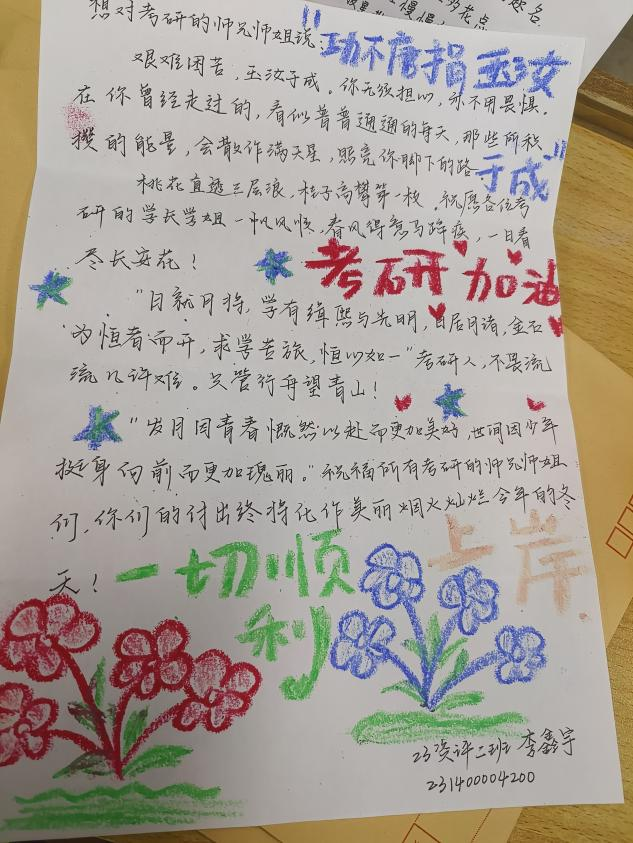 想对考研的师兄师姐说:
"功不唐捐 玉汝
于成"
艰难困苦,玉汝于成。你无须担心,亦不用畏惧。
在你曾经走过的,看似普普通通的每天,那些所积
攒的能量,会散作满天星,照亮你脚下的路
桃花直透三层浪,桂子高攀第一枝,祝愿各位考
研的学长学姐一帆风顺,春风得意马蹄疾,一日看
尽长安花!
考研 加油
"日就月将,学有缉熙与光明,日居月诸,金石
为恒者而开,求学苦旅,恒以如一"考研人,不畏流
流几许难。只管行舟望青山!
"岁月因青春慨然以赴而更加美好,世间因少年
挺身向前而更加瑰丽。"祝福所有考研的师兄师姐
们,你们的付出终将化作美丽烟火灿烂今年的冬
天!
一切顺
利
上岸
23资评二班 李鑫宇
231400004200